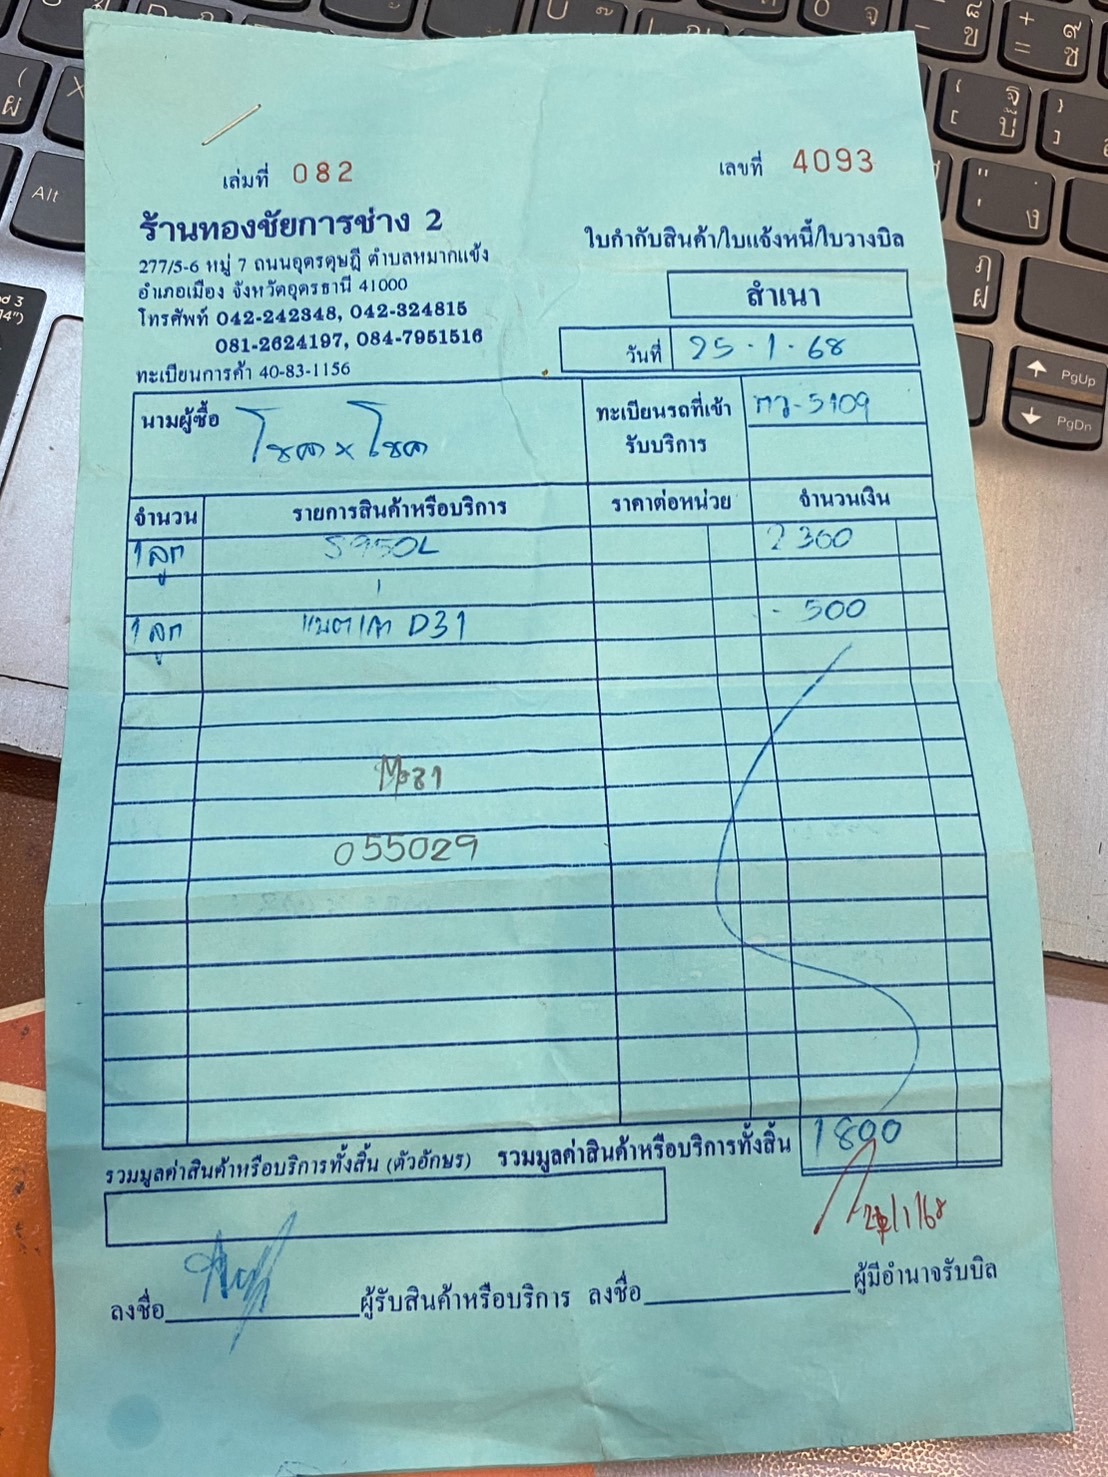 เล่มที่ 082
เลขที่ 4093
ร้านทองชัยการช่าง 2
277/5-6 หมู่ 7 ถนนอุดรดุษฎี ตำบลหมากแข้ง
อำเภอเมือง จังหวัดอุดรธานี 41000
โทรศัพท์ 042-242348, 042-324815
081-2624197, 084-7951516
ทะเบียนการค้า 40-83-1156
ใบกำกับสินค้า/ใบแจ้งหนี้/ใบวางบิล
สำเนา
วันที่ 25-1-68
นามผู้ซื้อ โชค x โชค
ทะเบียนรถที่เข้ารับบริการ กว-5109
จำนวน รายการสินค้าหรือบริการ ราคาต่อหน่วย จำนวนเงิน
1 ลูก 2300
1 ลูก แบตเก่า D31 -500
055029
รวมมูลค่าสินค้าหรือบริการทั้งสิ้น (ตัวอักษร) รวมมูลค่าสินค้าหรือบริการทั้งสิ้น 1800
ลงชื่อ ผู้รับสินค้าหรือบริการ ลงชื่อ ผู้มีอำนาจรับบิล